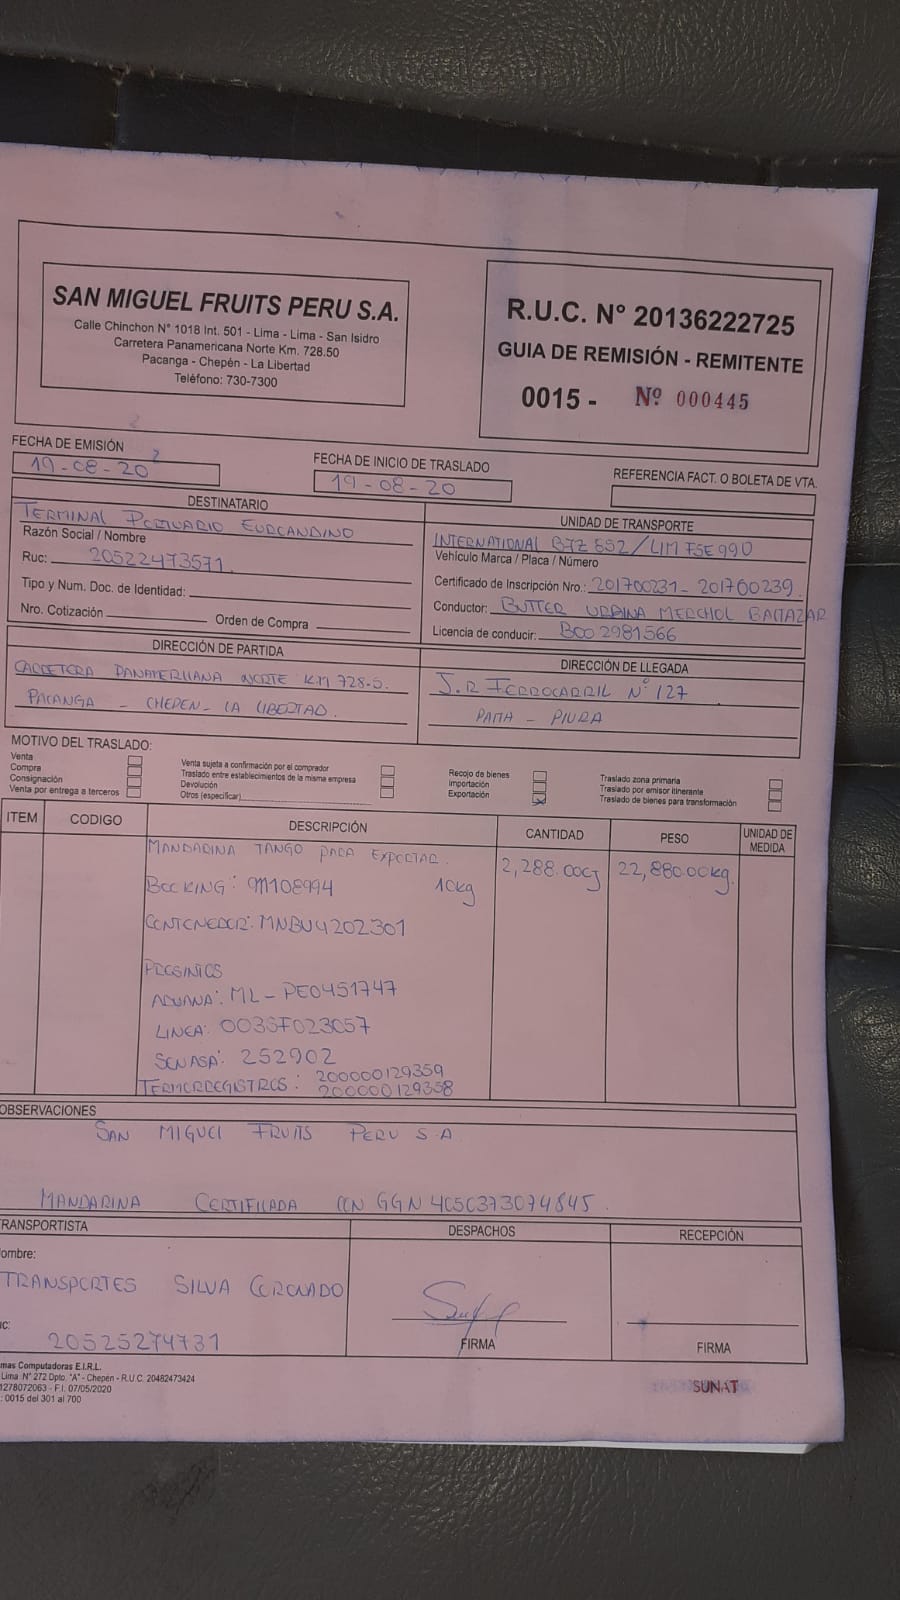 SAN MIGUEL FRUITS PERU S.A.
Calle Chinchon N° 1018 Int. 501 - Lima - Lima - San Isidro
Carretera Panamericana Norte Km. 728.50
Pacanga - Chepén - La Libertad
Teléfono: 730-7300
R.U.C. Nº 20136222725
GUIA DE REMISIÓN - REMITENTE
0015 - Nº 000445
FECHA DE EMISIÓN
19-08-20
FECHA DE INICIO DE TRASLADO
19-08-20
REFERENCIA FACT. O BOLETA DE VTA.
DESTINATARIO
TERMINAL PORTUARIO EUROANDINO
Razón Social / Nombre
Ruc: 20522473571
Tipo y Num. Doc. de Identidad:
Nro. Cotización Orden de Compra
UNIDAD DE TRANSPORTE
INTERNATIONAL B7Z 852/LIM FSE990
Vehículo Marca / Placa / Número
Certificado de Inscripción Nro.: 201700231 - 201700239
Conductor: BUTTER URBINA MERCHOL BALTAZAR
Licencia de conducir: B002981566
DIRECCIÓN DE PARTIDA
CARRETERA PANAMERICANA NORTE KM 728.5.
PACANGA - CHEPEN - LA LIBERTAD.
DIRECCIÓN DE LLEGADA
J.R FERROCARRIL Nº 127
PAITA - PIURA
MOTIVO DEL TRASLADO:
Venta
Compra
Consignación
Venta por entrega a terceros
Venta sujeta a confirmación por el comprador
Traslado entre establecimientos de la misma empresa
Devolución
Otros (especificar)
Recojo de bienes
Importación
Exportación
Traslado zona primaria
Traslado por emisor itinerante
Traslado de bienes para transformación
ITEM CODIGO DESCRIPCIÓN CANTIDAD PESO UNIDAD DE MEDIDA
MANDARINA TANGO PARA EXPORTAR. 2,288.00CJ 22,880.00kg.
BOOKING: 911108994 10kg
CONTENEDOR: MNBU4202301
PRESINTOS
ADUANA: ML-PE0451747
LINEA: 003SF023057
SENASA: 252902
TERMOREGISTROS: 200000129359
200000129358
OBSERVACIONES
SAN MIGUEL FRUITS PERU S.A
MANDARINA CERTIFICADA CON GGN 4050373074845
TRANSPORTISTA
ombre:
TRANSPORTES SILVA CORONADO
IC:
20525274731
DESPACHOS
FIRMA
RECEPCIÓN
FIRMA
mas Computadoras E.I.R.L.
Lima N° 272 Dpto. "A" - Chepén - R.U.C. 20482473424
1278072063 - F.I. 07/05/2020
: 0015 del 301 al 700
SUNAT